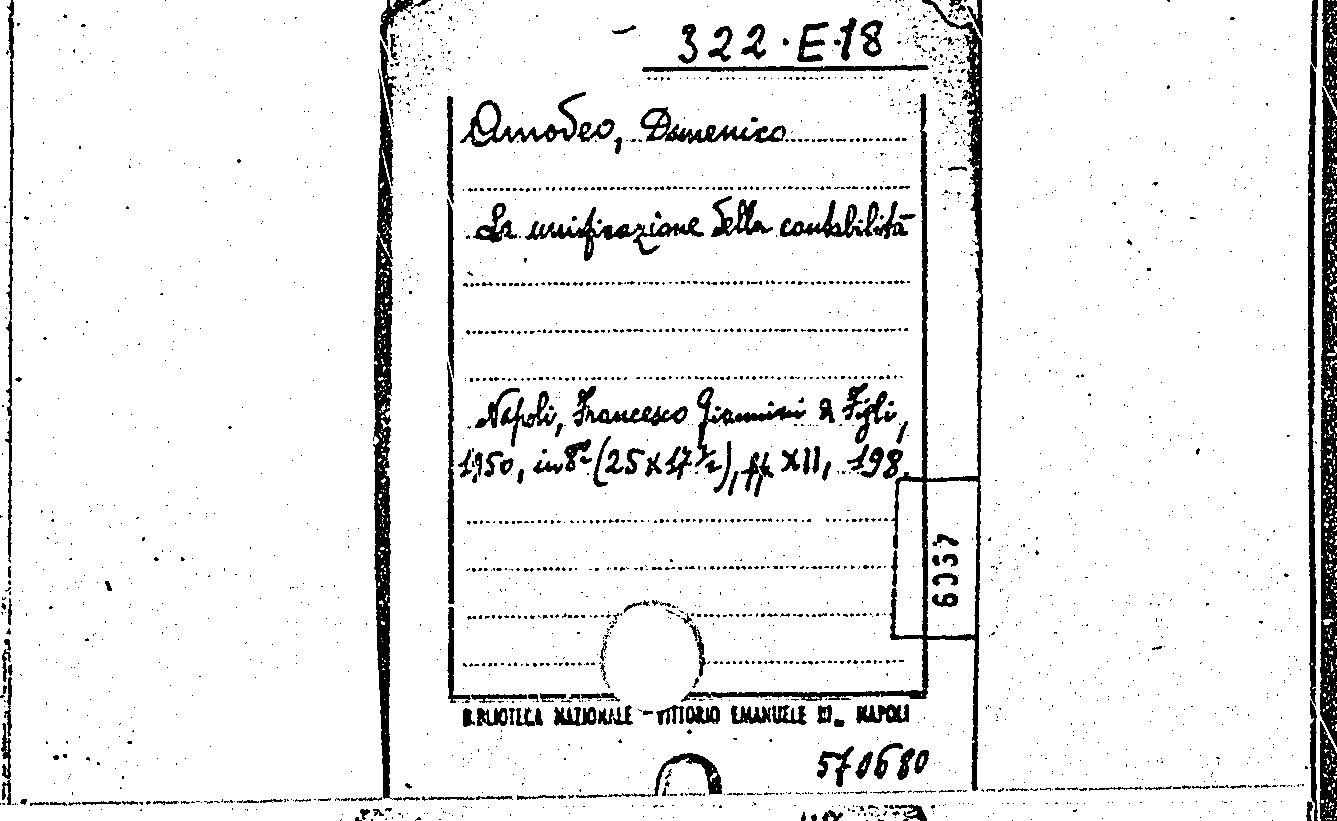 322·E·18
Amodeo, Domenico
La unificazione della contabilità
Napoli, Francesco Giannini & Figli,
1950, in 8º (25x17½), pp. XII, 198.
6037
BIBLIOTECA NAZIONALE - VITTORIO EMANUELE III_ NAPOLI
570680